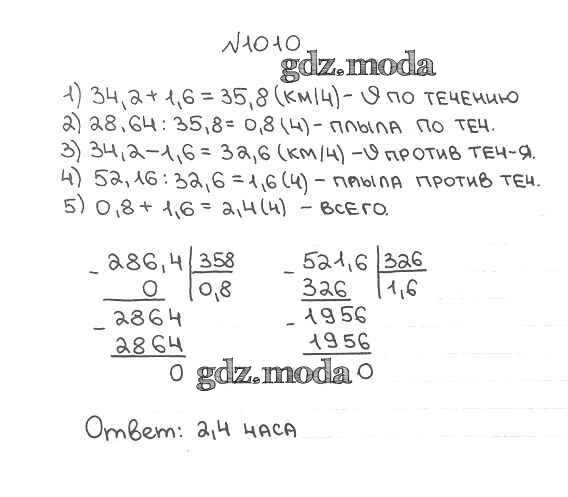 №1010
gdz.moda
1) 34,2 + 1,6 = 35,8 (км/ч) - υ по течению
2) 28,64 : 35,8 = 0,8 (ч) - плыла по теч.
3) 34,2 - 1,6 = 32,6 (км/ч) - υ против теч-я.
4) 52,16 : 32,6 = 1,6 (ч) - плыла против теч.
5) 0,8 + 1,6 = 2,4 (ч) - всего.
- 286,4 | 358
0 | 0,8
- 2864
2864
0
- 521,6 | 326
326 | 1,6
- 1956
1956
0
gdz.moda
Ответ: 2,4 часа